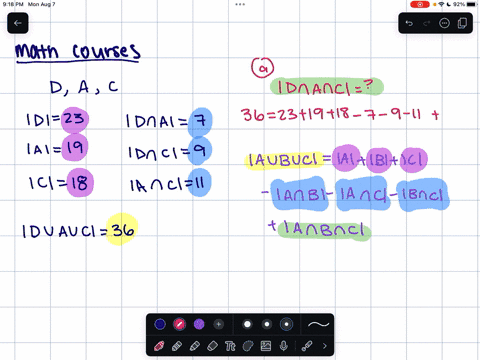 9:18 PM Mon Aug 7
92%
math courses
D, A, C
|D|= 23
|D∩A| = 7
|A|= 19
|D∩C| = 9
|C|= 18
|A∩C| = 11
|D∪A∪C| = 36
a
|D∩A∩C| = ?
36 = 23+19+18-7-9-11 +
|A∪B∪C| = |A|+|B|+|C|
- |A∩B| - |A∩C| - |B∩C|
+ |A∩B∩C|